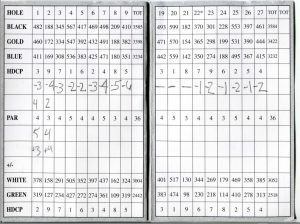 HOLE 1 2 3 4 5 6 7 8 9 TOT
BLACK 482 188 345 567 417 469 498 209 410 3585
GOLD 460 172 334 547 392 432 491 188 382 3398
BLUE 411 169 308 536 383 425 471 180 351
HDCP 3 9 7 1 6 2 4 8 5
-3 -4 -3 -2 -2 -3 -4 -5 -6
4 2
PAR 4 3 4 5 4 4 5 3 4 36
5 4
+3 +4
+/-
WHITE 378 158 291 505 352 397 437 162 324 3004
GREEN 319 127 234 427 272 274 361 109 319 2442
HDCP 2 9 7 1 6 3 4 8 5
19 20 21 22* 23 24 25 26 27 TOT
493 599 182 370 301 228 553 397 461 3584
471 570 154 365 298 199 531 390 444 3422
440 542 142 359 250 174 288 495 367 415
3 1 8 7 9 6 2 5 4
- - - -1 -2 -1 -2 -1 -2
5 5 3 4 4 3 5 4 4 36
401 517 130 344 269 179 469 358 385 3052
383 474 98 230 218 114 410 278 313 2518
3 1 8 7 6 9 2 5 4